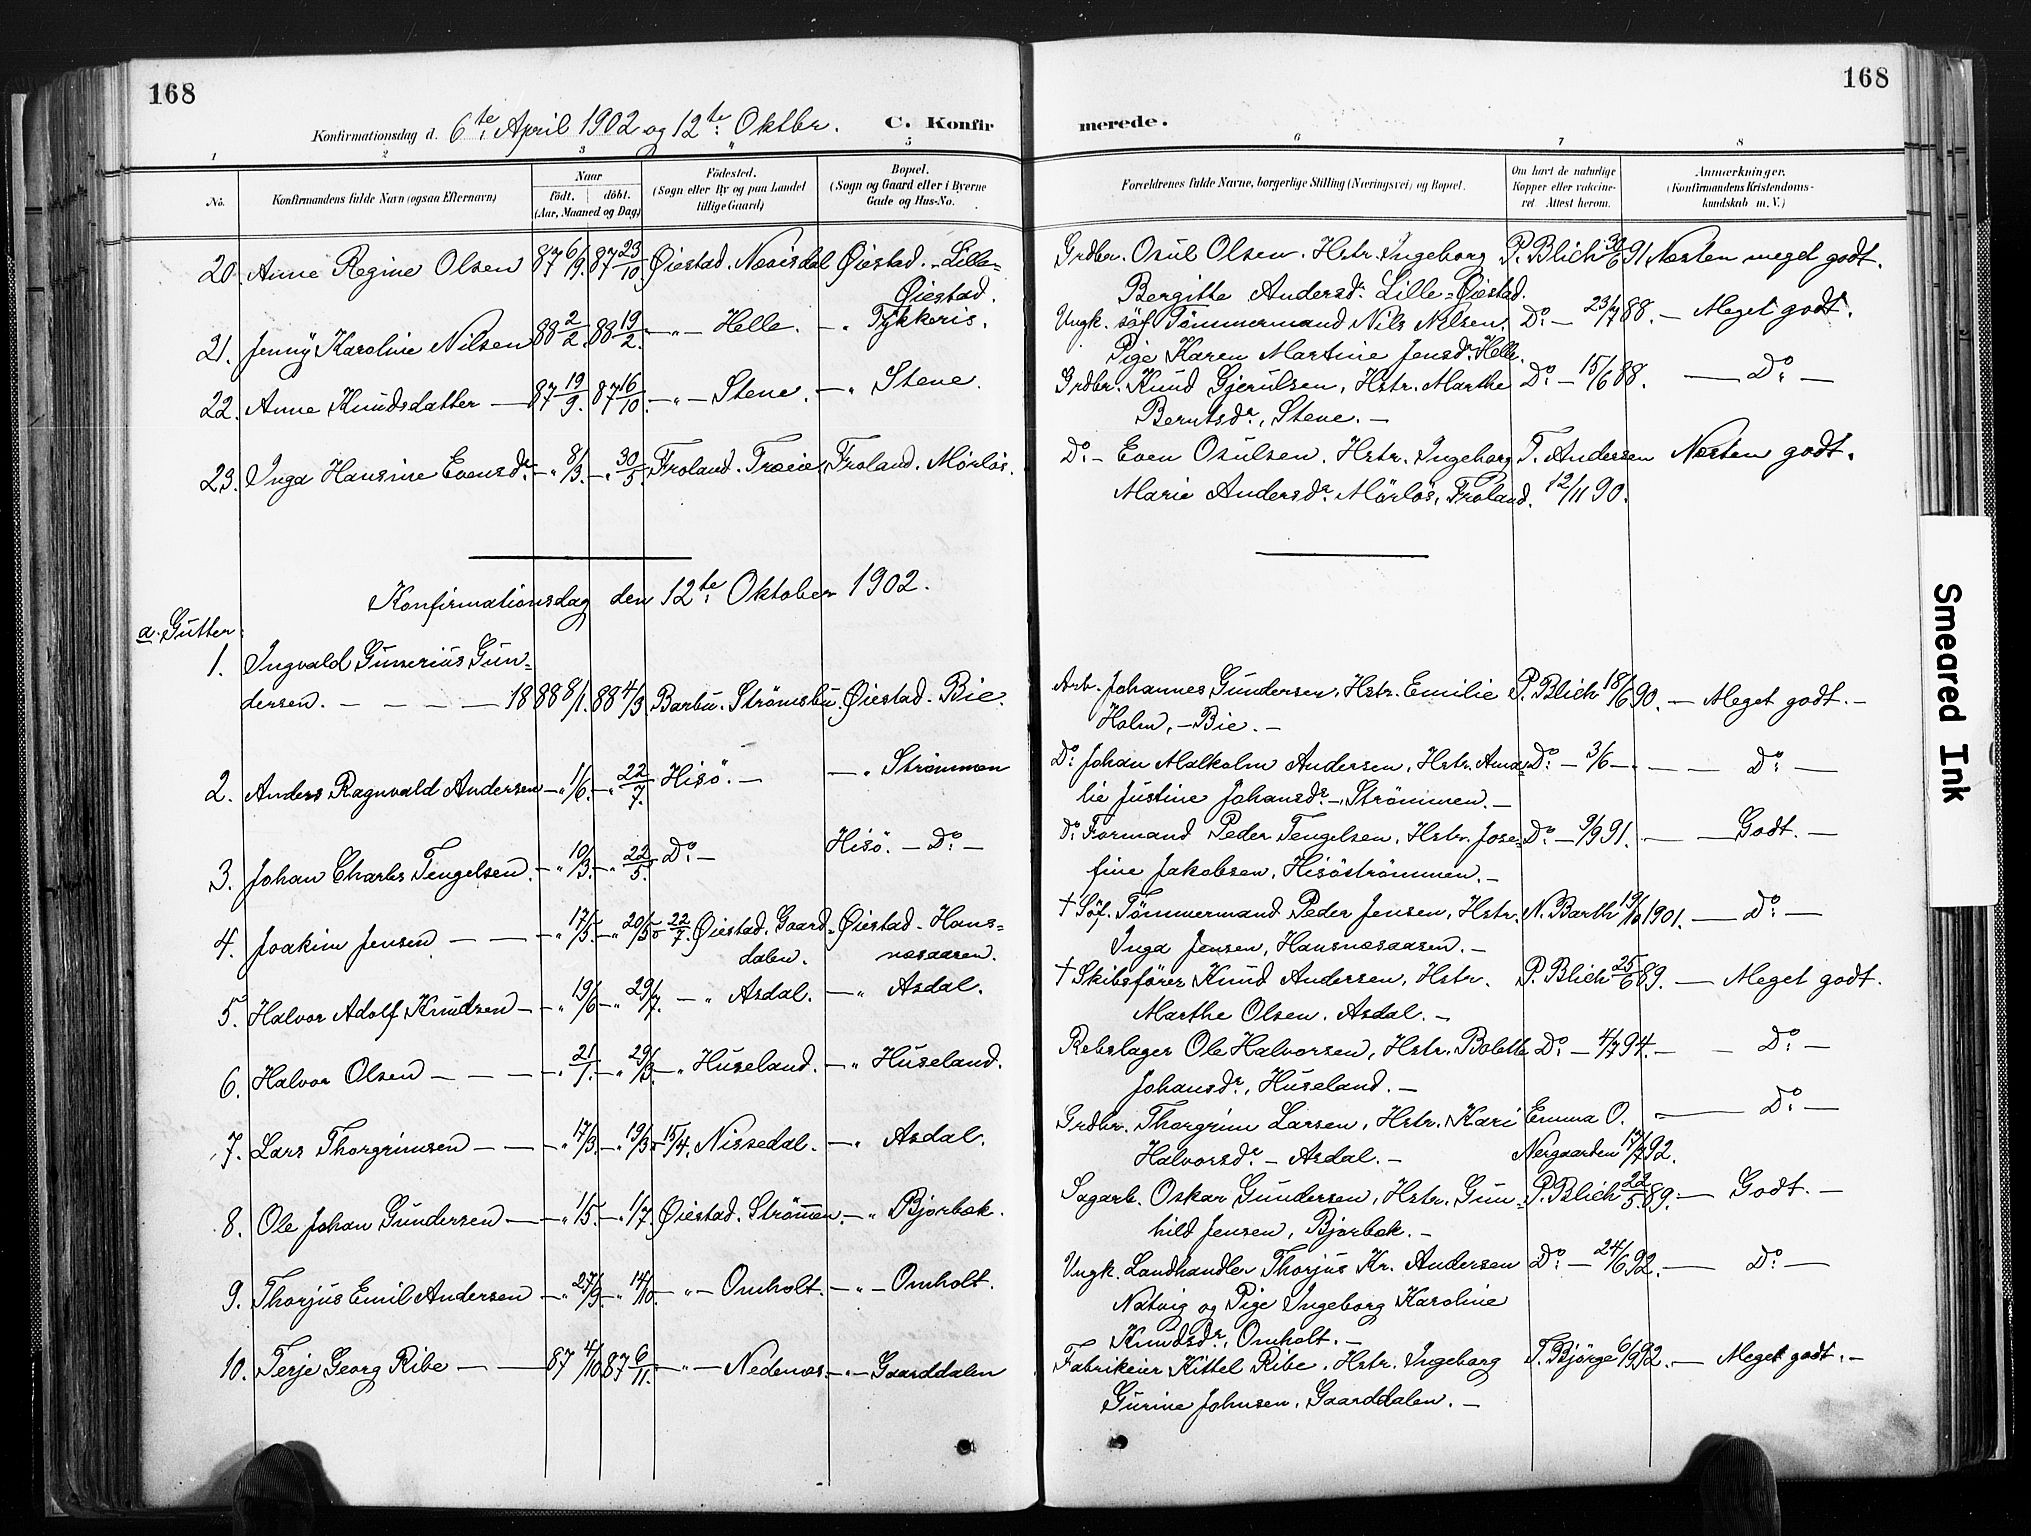 168
168
Konfirmationsdag d. 6te April 1902 og 12te Oktbr. C. Konfirmerede.
1 2 3 5 6 7 8
No. Konfirmandens fulde Navn (ogsaa Efternavn) Naar födt. döbt. (Aar, Maaned og Dag) Födested. (Sogn eller By og paa Landet tillige Gaard) Bopæl. (Sogn og Gaard eller i Byerne Gade og Hus-No. Forældrenes fulde Navne, borgerlige Stilling (Næringsvei) og Bopæl. Om havt de naturlige Kopper eller vaccineret. Attest herom. Anmerkninger. (Konfirmandens Kristendomskundskab m. V.)
20. Anne Regine Olsen 87 6/9. 87 23/10 Øiestad. Øiestad. Lille= Grdbr. Osul Olsen. Hstr. Ingeborg P. Blich 30/6 91. Næsten meget godt.
Øiestad. Bergitte Andersdr. Lille=Øiestad.
21. Jenny Karoline Nilsen 88 2/2. 88 19/2. — " — Helle. — " Tykkeris. Ungk. söf. Tömmermand Nils Nilsen, Do. — 23/7 88. — Meget godt.
Pige Karen Martine Jensdr. Helle.
22. Anne Knudsdatter — 87 19/9. 87 16/10. — " — Stene. — " Stene. Grdbr. Knud Gjerulsen, Hstr. Marthe Do. — 15/6 88. — Do. —
Berntsdr., Stene. —
23. Inga Hansine Evensdr. — " 8/3. — " 30/5. Froland. Træie. Froland. Mörlös. Do. — Even Osulsen. Hstr. Ingeborg T. Andersen Næsten godt.
Marie Andersdr. Mörlös, Froland. 12/11 90.
Konfirmationsdag den 12te Oktober 1902.
a. Gutter:
1. Ingvald Gunerius Gun=
dersen. — — — — 1888 8/1. 88 4/3. Barbu. Strömsbu. Øiestad. Bie. Arb. Johannes Gundersen, Hstr. Emilie P. Blich 18/6 90. — Meget godt. —
Holm, — Bie. —
2. Anders Ragnvald Andersen — " 1/6. — " 22/7. Hisö. — — " Strömmen Do. Johan Malkolm Andersen, Hstr. Ama= Do. — 3/6 — — — Do. —
lie Justine Johansdr. —, Strömmen. —
3. Johan Charles Tengelsen. — " 10/3. — " 22/5. Do. — Hisö. — Do. — Do. Formand Peder Tengelsen, Hstr. Jose= Do. — 9/9 91. — — Godt. —
fine Jakobsen, Hisöströmmen. —
4. Joakim Jensen — — — " 17/5. — " 20/5 — 22/7. Øiestad. Gaard= Øiestad. Hans= † Söf. Tömmermand Peder Jensen, Hstr. N. Barth 19/10 1901. — Do. —
dalen. næsaasen. Inga Jensen, Hansnæsaasen. —
5. Halvor Adolf Knudsen — — " 19/6 — " 29/7. — " Asdal. — " Asdal. † Skibsförer Knud Andersen, Hstr. P. Blich 25/6 89. — Meget godt.
Marthe Olsen. Asdal. —
6. Halvor Olsen — — — — " 21/1. — " 29/3. — " Huseland. — " Huseland. Rebslager Ole Halvorsen, Hstr. Bolette Do. — 4/7 94. — — Do. —
Johansdr., Huseland. —
7. Lars Thorgrimsen — — — " 17/3. — " 19/3 — 15/4. Nissedal. — " Asdal. Grdbr. Thorgrim Larsen, Hstr. Kari Emma O. — Do. —
Halvorsdr. — Asdal. — Nergaarden 17/7 92.
8. Ole Johan Gundersen — — " 1/5. — " 1/7. Øiestad. Strömen. — " Bjorbæk. Sagarb. Oskar Gundersen, Hstr. Gun= P. Blich 22/5 89. — Godt. —
hild Jensen, Bjorbæk. —
9. Thorjus Emil Andersen — " 27/3. — " 14/10. — " — Omholt. — " — Omholt. Ungk. Landhandler Thorjus Kr. Andersen Do. — 24/6 92. — Do. —
Natvig og Pige Ingeborg Karoline
Knudsdr., Omholt. —
10. Terje Georg Ribe — — 87 4/10 87 6/11. — " — Nedenæs. — " — Gaarddalen Fabrikeier Kittel Ribe. Hstr. Ingeborg T. Björge 6/9 92. — Meget godt. —
Gurine Johnsen, Gaarddalen. —
Smeared Ink